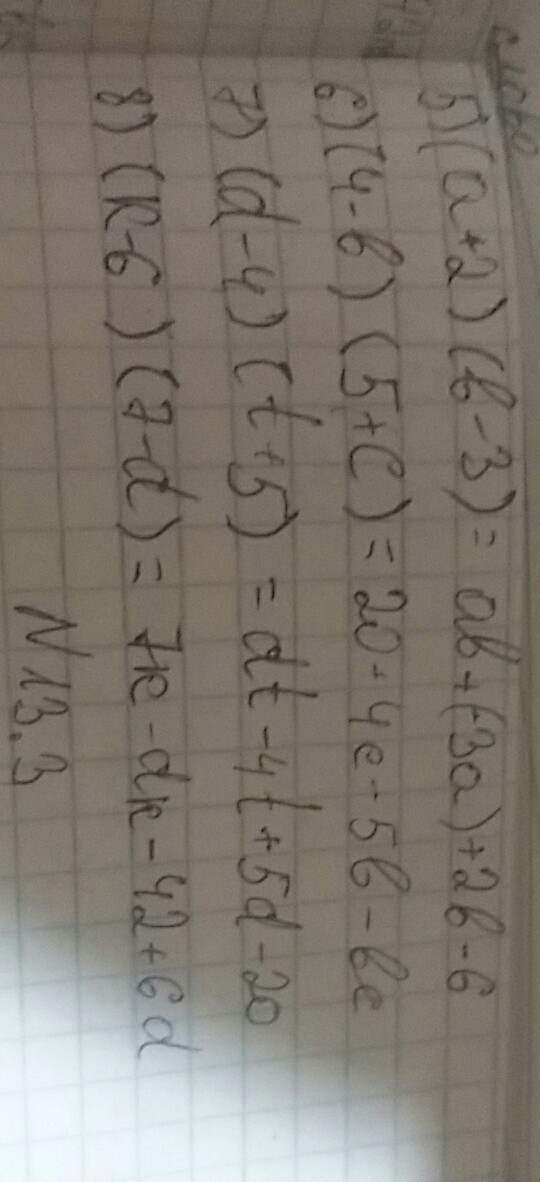 5) (a+2) (b-3) = ab+(-3a)+2b-6
6) (4-b) (5+c) = 20+4c-5b-bc
7) (d-4) (t+5) = dt-4t+5d-20
8) (k-6) (7-d) = 7k-dk-42+6d
N 13.3